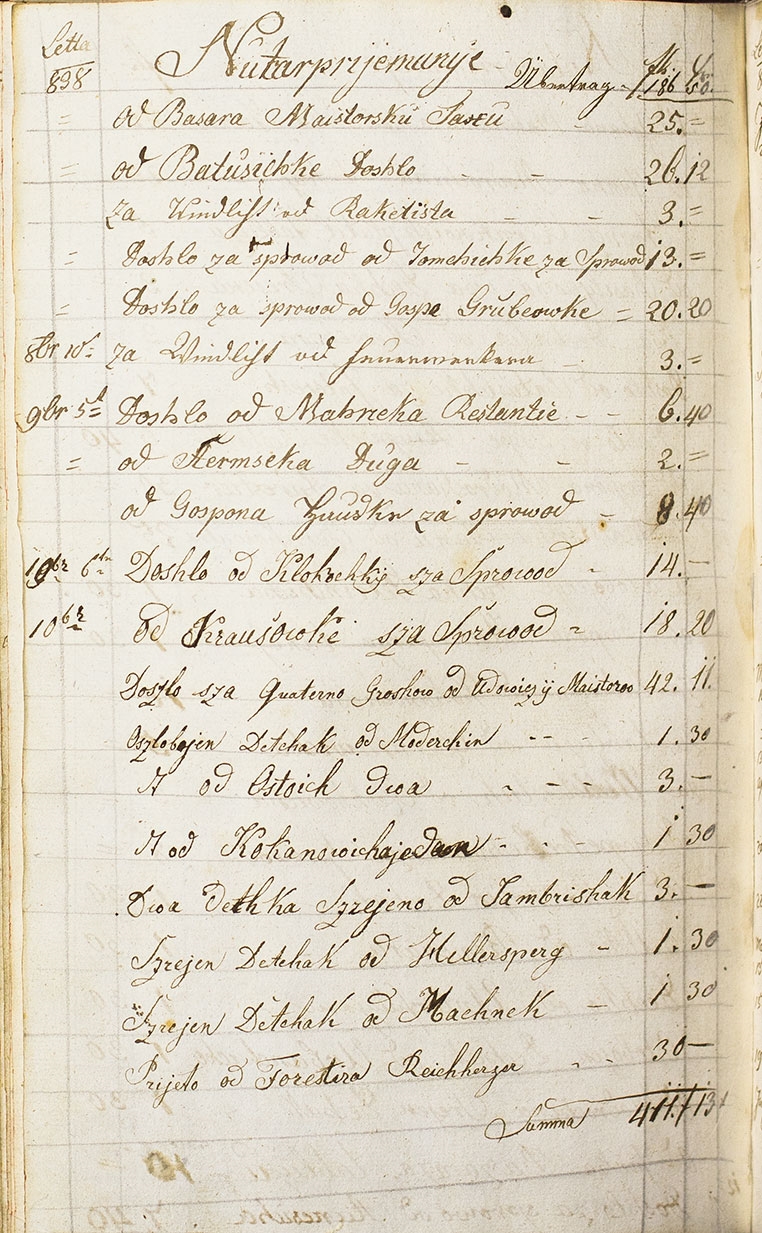 Letta Nutarprijemanje fl. Xr
898 Übertrag 186 50.
= od Basara Maistorsku Taxu 25. =
= od Batusichke Doshlo - - 26. 12
za Windlist od Raketista - - 3. =
= Doshlo za sprowod od Tomchichke za Sprowod 13. =
= Doshlo za sprowod od Gospe Grubeowke = 20. 20
8br 10t za Windlist od feuerwerkera - 3. =
9br 5t Doshlo od Mahneka Restantie - - 6. 40
= od Hermseka Duga - - 2. =
od Gospona Hauske za sprowod - 8. 40
10br 6tn Doshlo od Klokochky sza Sprowod - 14. -
10br od Krausowke sza Sprowod = 18. 20
Doszlo sza Quaterno Groshow od Udowiczij Maistorov 42. 11.
Oszlobojen Detchak od Moderchin - - 1. 30
It od Ostoich dwa - - - 3. -
It od Kokanowicha jedan - - - 1 30
Dwa dethka Szrejeno od Jambrishak 3. -
Szrejen Detchak od Hillersperg - 1. 30
Szrejen Detchak od Machnek - 1 30
Prijeto od Forestira Reichherzer - - 30 -
Summa 411. 13